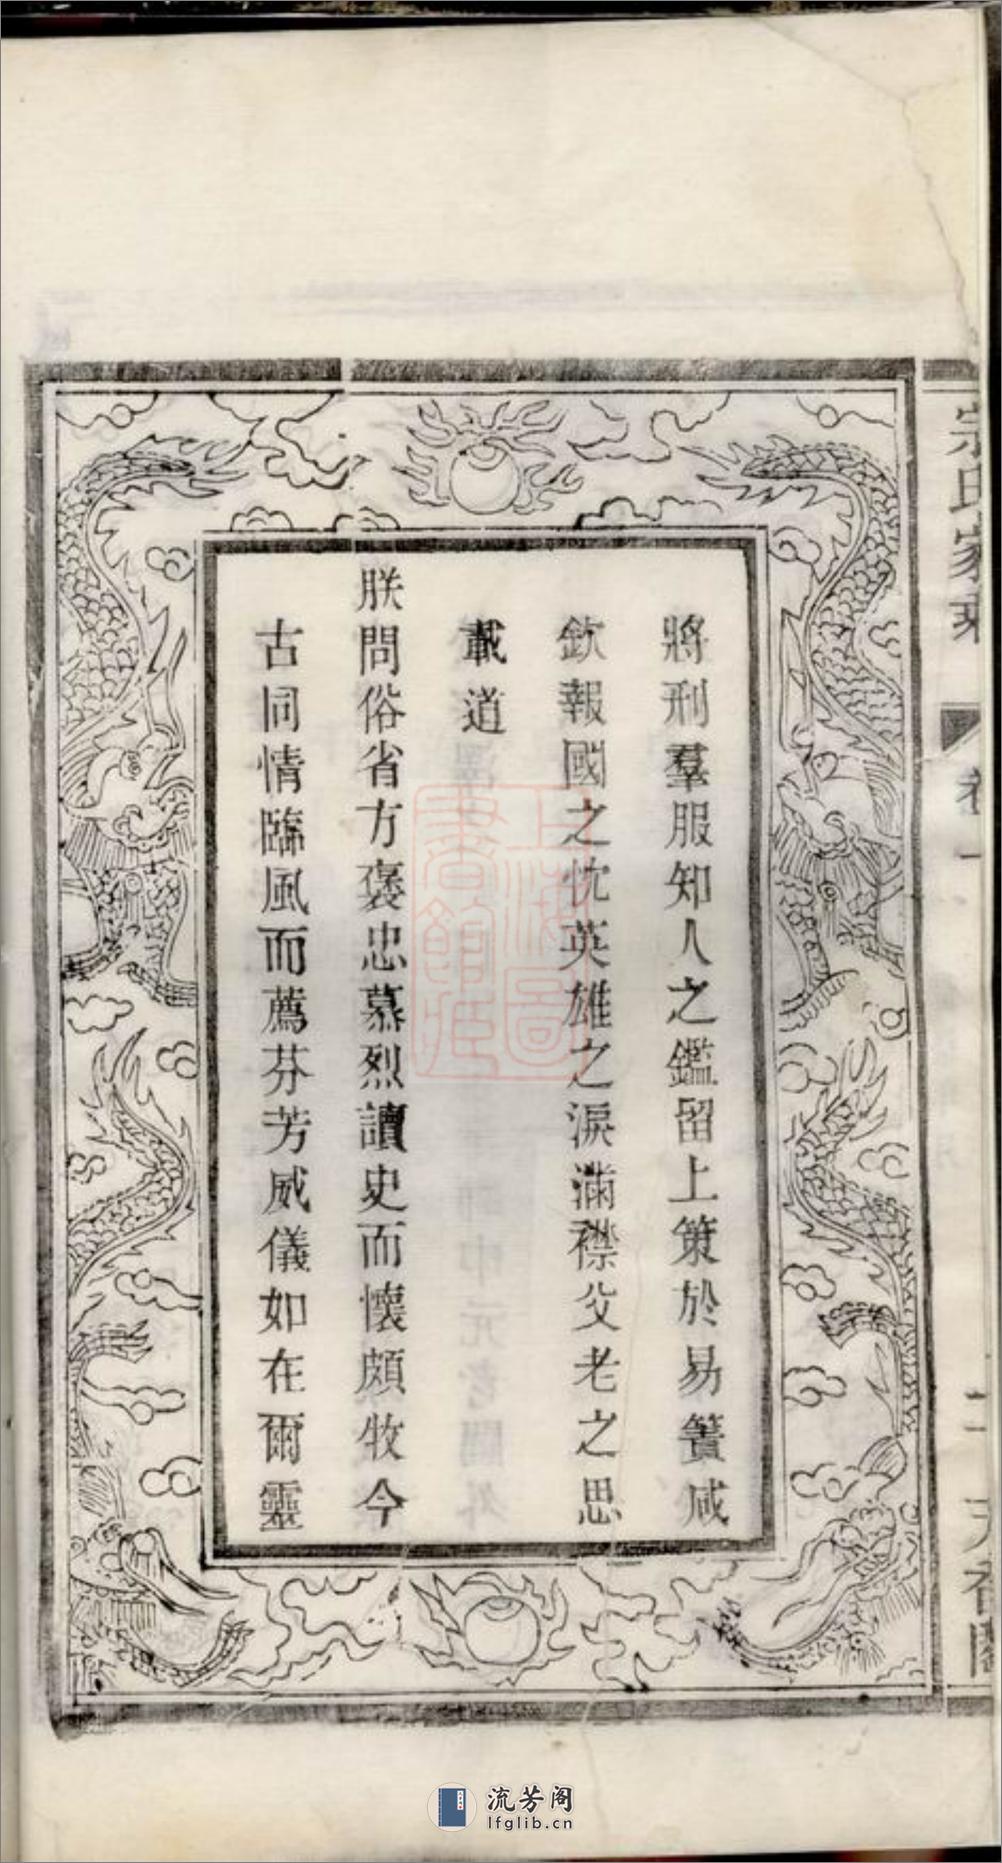 宗氏家乘
卷一
二
將刑羣服知人之鑑留上策於易簀咸
欽報國之忱英雄之淚滿襟父老之思
載道
朕問俗省方褒忠慕烈讀史而懷頗牧今
古同情臨風而薦芬芳威儀如在爾靈
上海圖書館藏
流芳阁
lfglib.cn